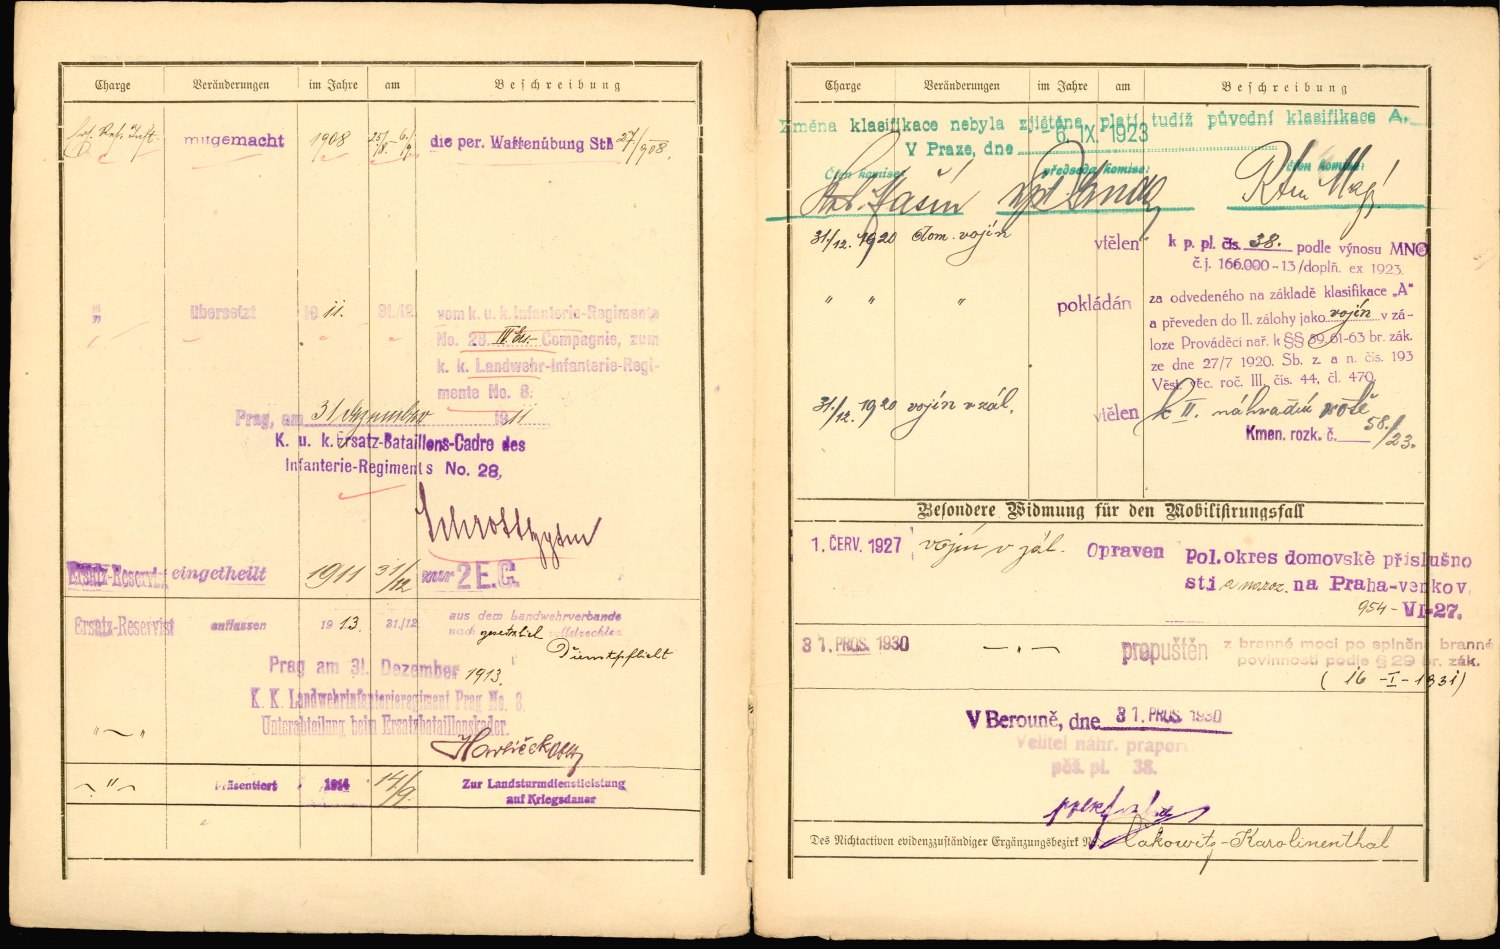 Charge Veränderungen im Jahre am Beschreibung
mitgemacht 1908 die per. Waffenübung Stb 27/908.
" übersetzt 1911. 31./12. vom k. u. k. Infanterie-Regimente
No. 28. Compagnie, zum
k. k. Landwehr-Infanterie-Regi-
mente No. 8.
Prag, am 31 Dezember 1911
K. u. k. Ersatz-Bataillons-Cadre des
Infanterie-Regiments No. 28.
Ersatz-Reservist eingetheilt 1911 31/12 zur 2 E.C.
Ersatz-Reservist entlassen 1913. 31./12 aus dem Landwehrverbande
nach gesetzlich vollstreckter
Dienstpflicht
Prag am 31. Dezember 1913.
K. K. Landwehrinfanterieregiment Prag No. 8.
Unterabteilung beim Ersatzbataillonskader.
" Präsentiert 1914 14/9. Zur Landsturmdienstleistung
auf Kriegsdauer
Charge Veränderungen im Jahre am Beschreibung
Změna klasifikace nebyla zjištěna, platí tudíž původní klasifikace A.
V Praze, dne 6. IX. 1923
Člen komise: předseda komise: člen komise:
31/12. 1920 dom. vojín vtělen k p. pl. čís. 38. podle výnosu MNO
č.j. 166.000-13/doplň. ex 1923.
" " " pokládán za odvedeného na základě klasifikace „A"
a převeden do II. zálohy jako vojín v zá-
loze Prováděcí nař. k §§ 59,61-63 br. zák.
ze dne 27/7 1920. Sb. z. a n. čís. 193
Věst. věc. roč. III, čís. 44, čl. 470.
31./12. 1920 vojín v zál. vtělen k II. náhradní rotě
Kmen. rozk. č. 58/23.
Besondere Widmung für den Mobilisirungsfall
1. ČERV. 1927 vojín v zál. Opraven pol. okres domovské příslušno
sti a naroz. na Praha-venkov
954 - VI-27.
31. PROS. 1930 - " - propuštěn z branné moci po splnění branné
povinnosti podle § 29 br. zák.
( 16 - I - 1931)
V Berouně, dne 31. PROS. 1930
Velitel náhr. praporu
pěš. pl. 38.
Des Nichtactiven evidenzzuständiger Ergänzungsbezirk Nr. Lakowitz-Karolinenthal